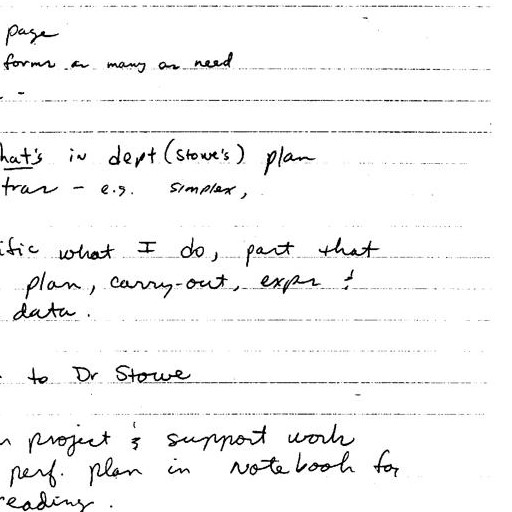 page
forms as many as need
hat's in dept (Stowe's) plan
trar - e.g. simplex,
ific what I do, part that
plan, carry-out, expr &
data.
to Dr Stowe
project & support work
perf. plan in notebook for
reading.